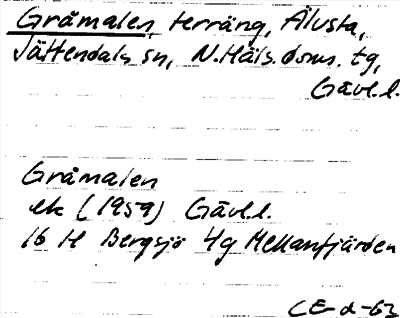 Gråmalen, terräng, Älvsta,
Jättendals sn, N. Häls. doms. tg,
Gävl.l.
Gråmalen
ek (1959) Gävl.l.
16 H Bergsjö 4g Mellanfjärden
CE-d-63